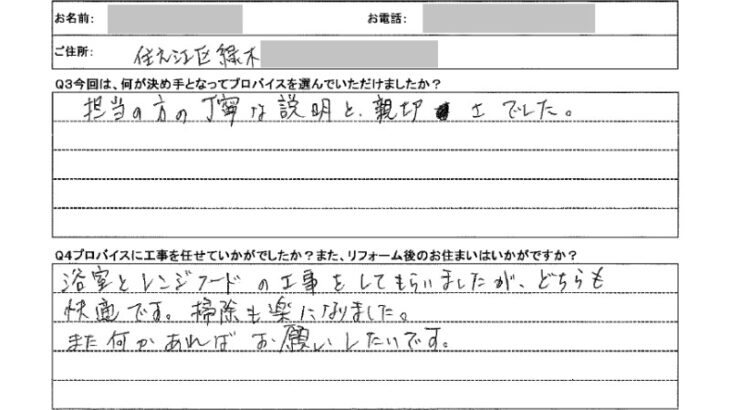 お名前: お電話:
ご住所: 住之江区緑木
Q3今回は、何が決め手となってプロバイスを選んでいただけましたか？
担当の方の丁寧な説明と、親切さでした。
Q4プロバイスに工事を任せていかがでしたか？また、リフォーム後のお住まいはいかがですか？
浴室とレンジフードの工事をしてもらいましたが、どちらも
快適です。掃除も楽になりました。
また何かあればお願いしたいです。